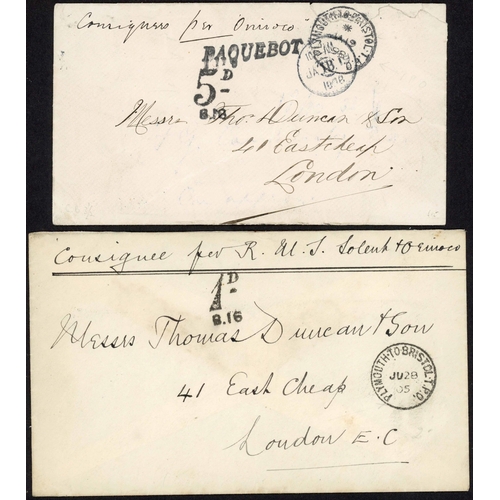 Consignees per Orinoco
PAQUEBOT
PLYMOUTH·TO·BRISTOL·T.P.O.
JA 18
1908
5D
B.16
Messrs Thos Duncan & Son
41 Eastcheap
London
Consignee per R. M. S. Solent & Orinoco
1D
B.16
Messrs Thomas Duncan & Son
PLYMOUTH·TO·BRISTOL·T.P.O.
JU 28
05
41 East Cheap
London E.C